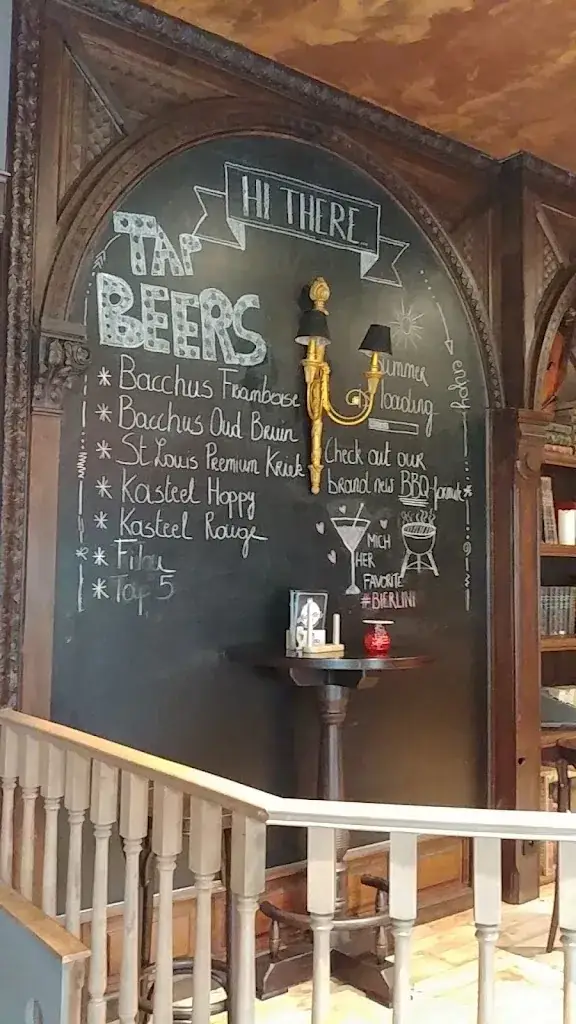 HI THERE
TAP
BEERS
* Bacchus Framboise
* Bacchus Oud Bruin
* St Louis Premium Kriek
* Kasteel Hoppy
* Kasteel Rouge
* Filou
* Tap 5
Summer
loading
enjoy
Check out our
brand new BBQ-formule*
MICH
HER
FAVORITE
#BIERLINI